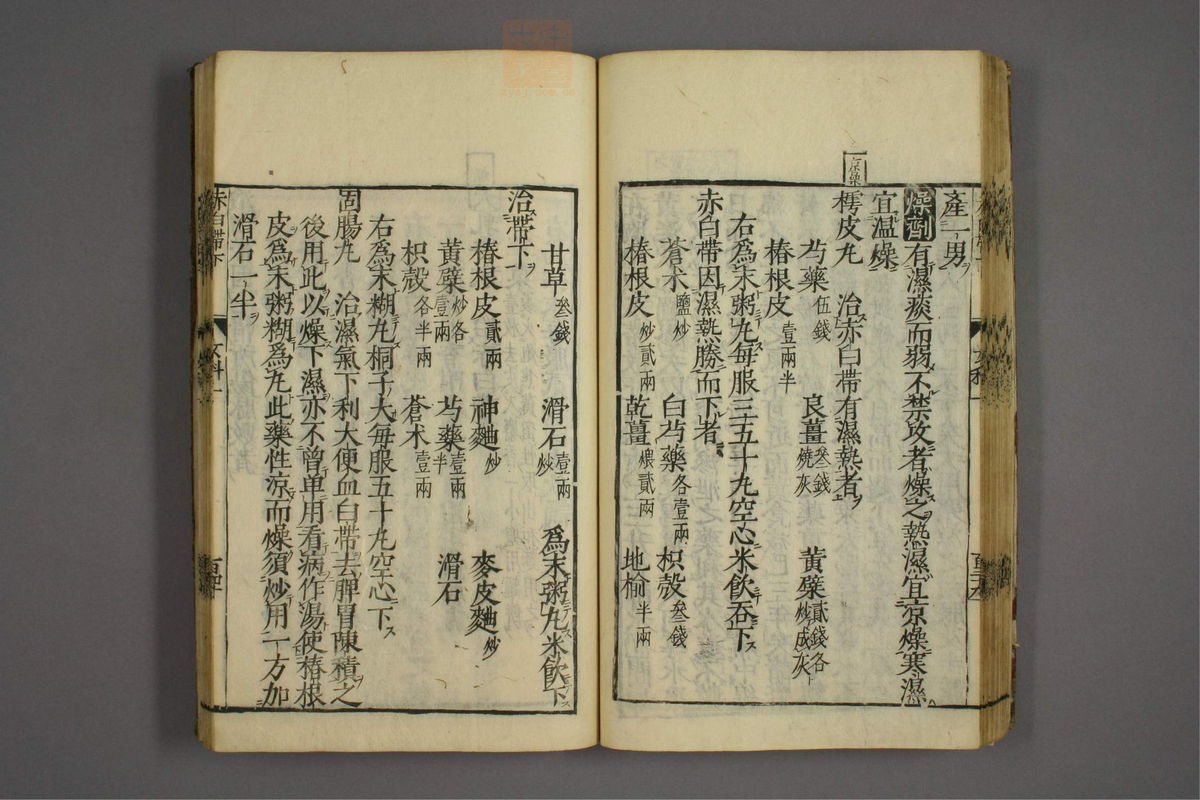 產一男
燥劑有濕痰而弱不禁攻者燥之熱濕宜凉燥寒濕
宜温燥
樗皮丸 治赤白帶有濕熱者
芍藥伍錢 良薑叁錢燒灰 黃蘗貳錢各炒成灰
椿根皮壹兩半
右爲末粥丸每服三五十丸空心米飲吞下
赤白帶因濕熱勝而下者
蒼朮鹽炒 白芍藥各壹兩 枳殼叁錢
椿根皮炒貳兩 乾薑煨貳兩 地榆半兩
甘草叁錢 滑石壹兩炒 爲末粥丸米飲下
治帶下
椿根皮貳兩 神麯炒 麥皮麯炒
黃蘗炒各壹兩 芍藥壹兩半 滑石
枳殼各半兩 蒼朮壹兩
右爲末糊丸桐子大每服五十丸空心下
固腸丸 治濕氣下利大便血白帶去脾胃陳積之
後用此以燥下濕亦不曾单用看病作湯使椿根
皮爲末粥糊爲丸此藥性凉而燥須炒用一方加
滑石一半
赤白帶下
女科一